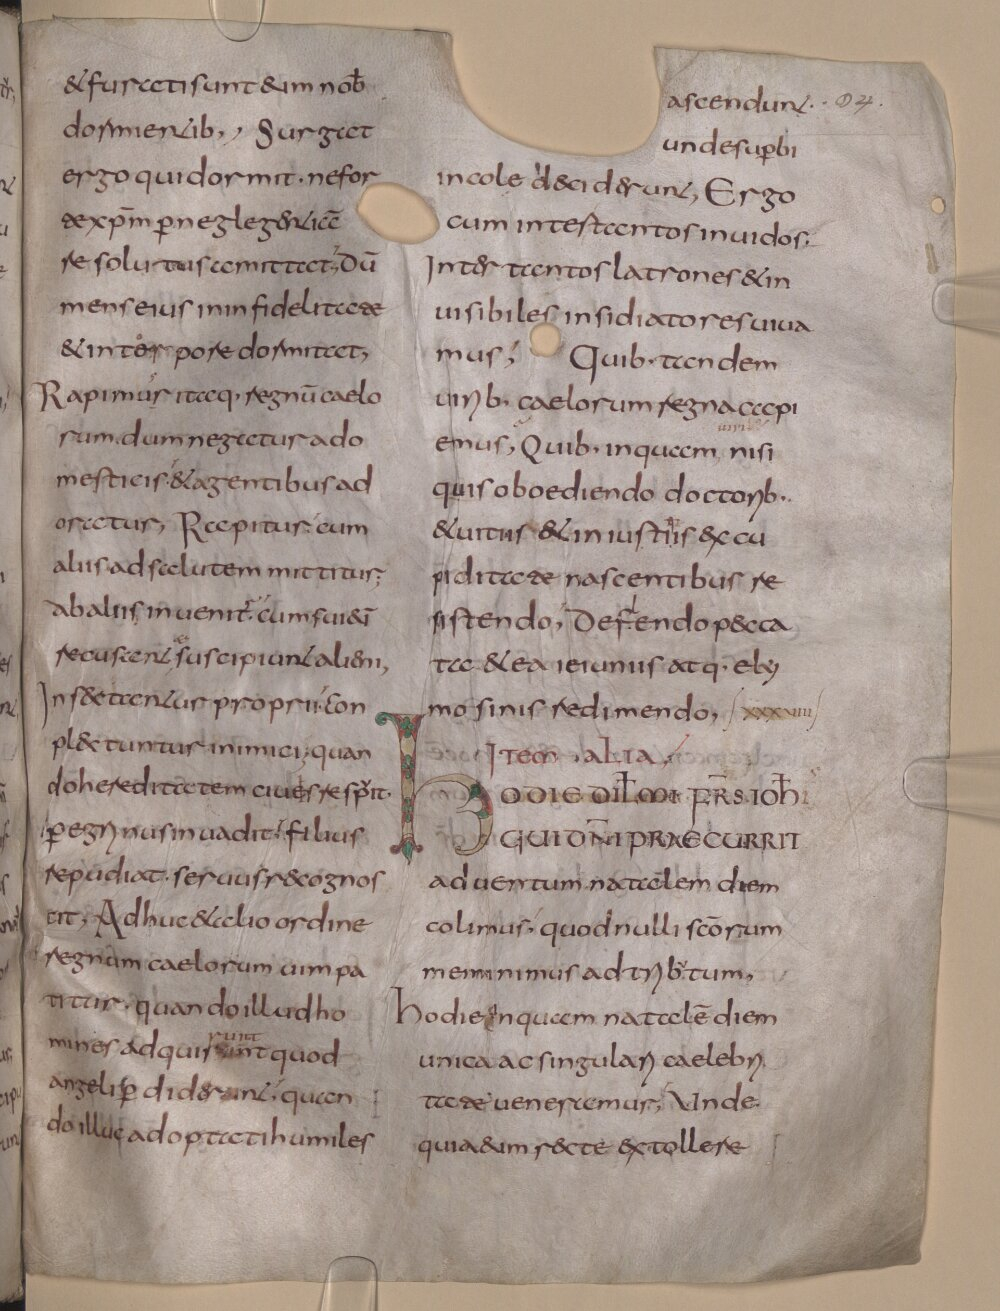 & furati sunt & im nob̄
dormientib; Surgat
ergo qui dormit · ne for
te xp̄m p̄ neglegentiā
resolutus amittat; dū
mens eius in infidelitate
& in tempore dormitat;
Rapimus itaq· regnū caelo
rum dum negatur a do
mesticis & a gentibus ad
oratur; Rapitur cum
aliis ad salutem mittitur;
ab aliis invenit̄ cum sui dā
recusant suscipiunt alieni;
Insaetantur proprii Con
plaetuntur inimici; quan
do hereditatem cives resp̄it·
peregrinus invadit filius
repudiat · servus recognos
cit; Adhuc & alio ordine
regnum caelorum vim pa
titur · quando illud ho
mines adquisierunt quod
angeli p̄diderunt quan
do illuc adoptati humiles
ascendunt · 94.
unde sup̄bi
incolę deciderunt; Ergo
cum inter tantos invidos
Inter tantos latrones & in
visibiles insidiatores viva
mus; Quib· tandem
virib· caelorum regna accipi
emus; Quib· inquam viribus nisi
quis oboediendo doctorib·
& vitiis & iniustitiis ex cu
piditate nascentibus re
sistendo; Defendo pecca
ta & ea ieiuniis atq· ely
mosinis redimendo; XXXVIIII
Item alia
HODIE DIL̄MI FR̄S IOH̄I
QUI DN̄I PRAECURRIT
adventum natalem diem
colimus quod nulli scōrum
meminimus adtributum;
hodie inquam natalē diem
unica ac singulari caelebri
tate veneramur; Unde
quia &im recte extollere